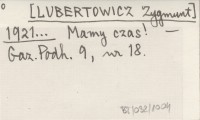 [LUBERTOWICZ Zygmunt]
1921... Mamy czas! —
Gaz. Podh. 9, nr 18.